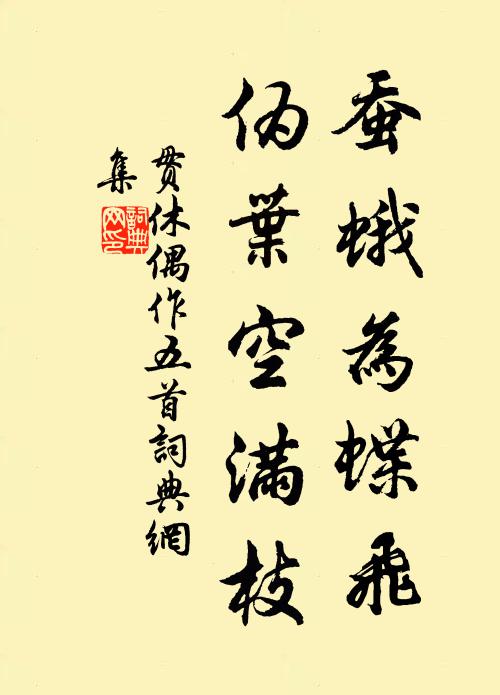 蚕蛾為蝶飛
伪葉空滿枝
贯休偶作五首詞典網
集
詞典
网印